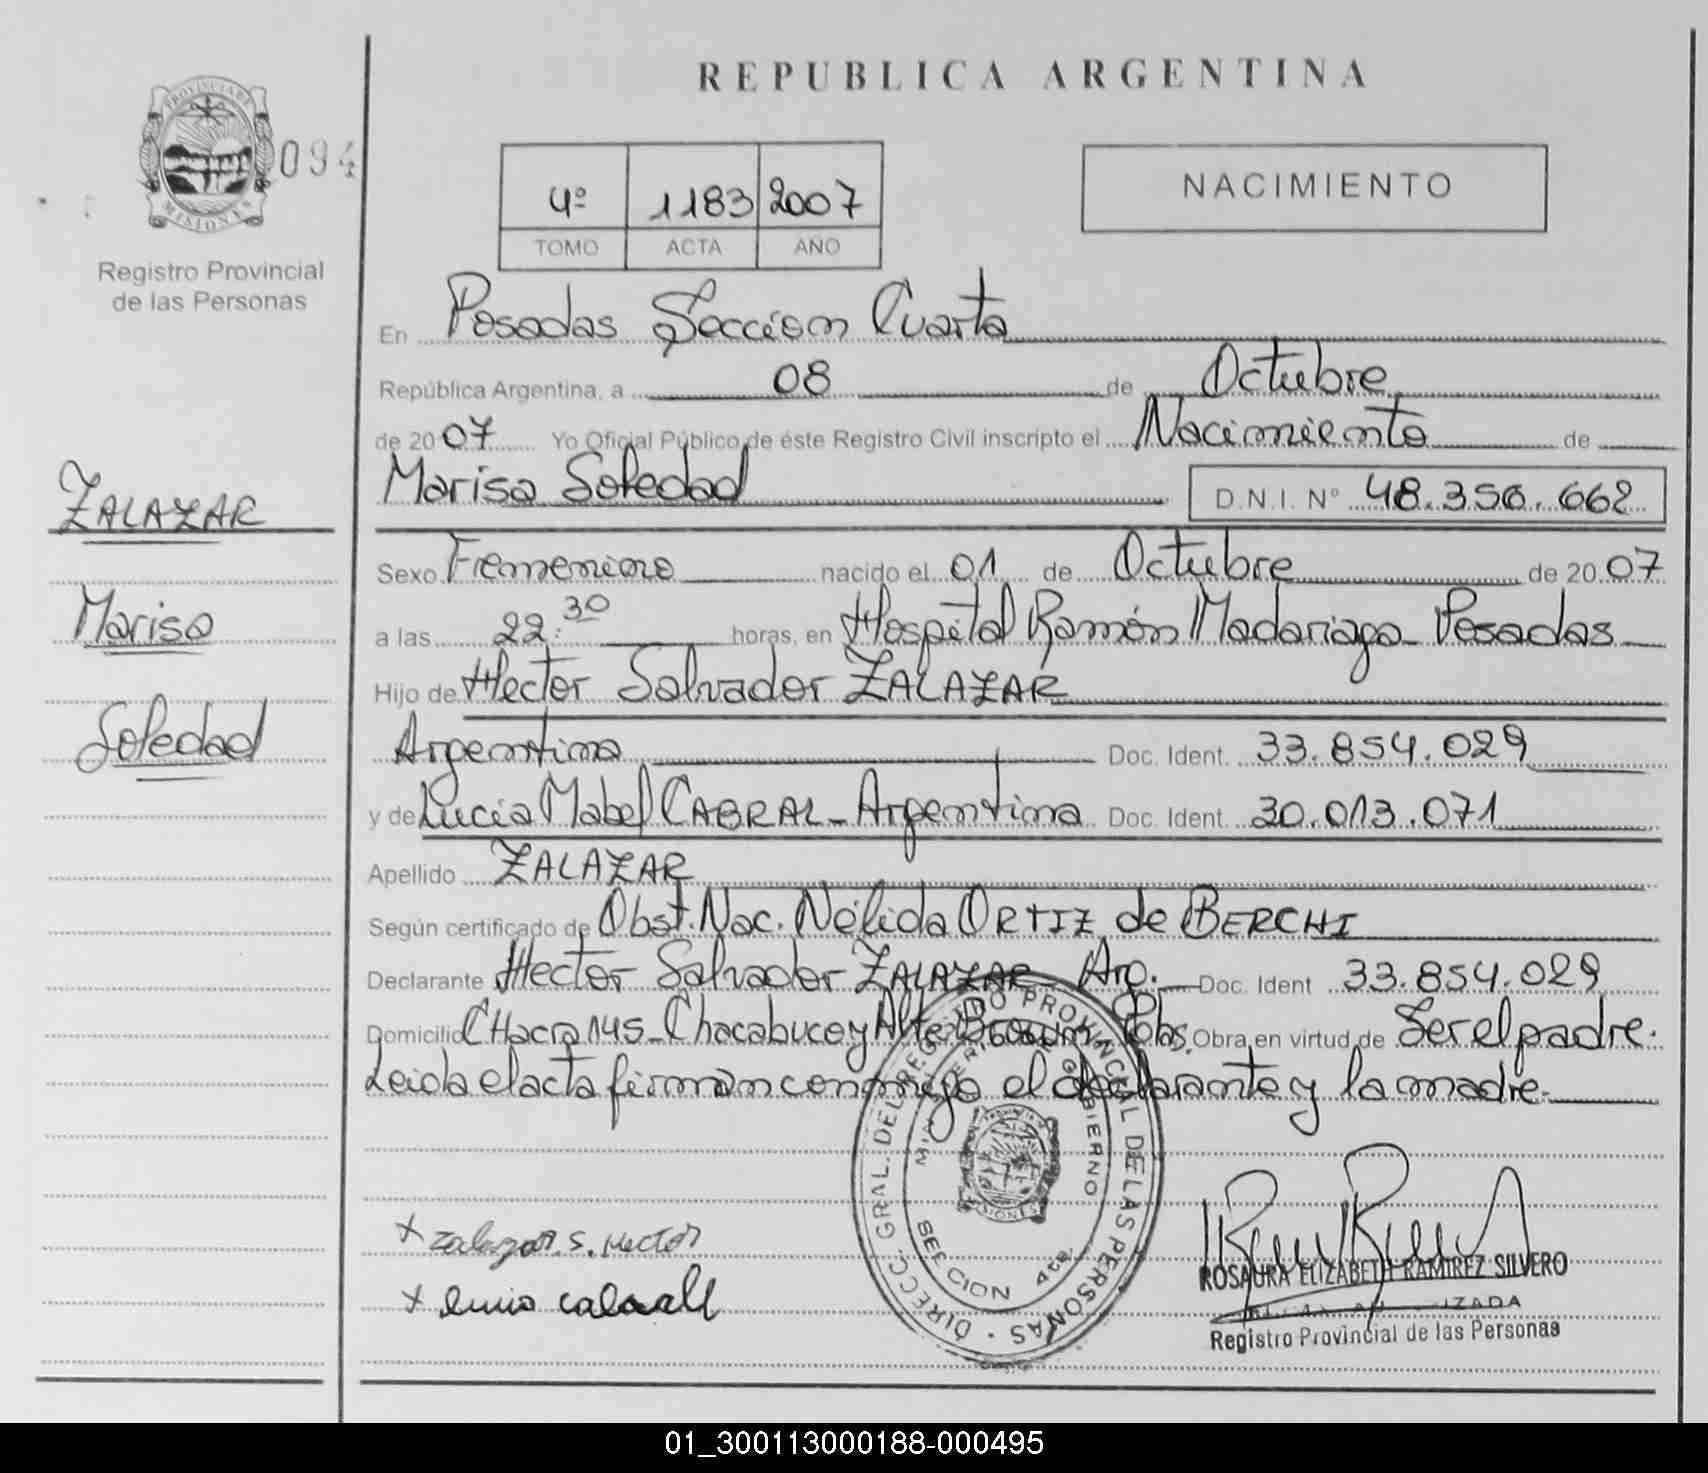 REPUBLICA ARGENTINA
PROVINCIA DE
MISIONES
094
Registro Provincial
de las Personas
4º 1183 2007
TOMO ACTA AÑO
NACIMIENTO
En Posadas Sección Cuarta
República Argentina, a 08 de Octubre
de 2007 Yo Oficial Público de éste Registro Civil inscripto el Nacimiento de
Marisa Soledad D.N.I. Nº 48.356.662
ZALAZAR
Marisa
Soledad
Sexo Femenino nacido el 01 de Octubre de 2007
a las 22:30 horas, en Hospital Ramón Madariaga - Posadas
Hijo de Hector Salvador ZALAZAR
Argentina Doc. Ident. 33.854.029
y de Lucia Mabel CABRAL - Argentina Doc. Ident. 30.013.071
Apellido ZALAZAR
Según certificado de Obst. Nac. Nélida ORTIZ de BERCHI
Declarante Hector Salvador ZALAZAR - Arg. Doc. Ident 33.854.029
Domicilio CHacra 145 - Chacabuco y Alte Brown Pdas. Obra en virtud de Ser el padre.
Leida el acta firman conmigo el declarante y la madre.
DIRECC. GRAL. DEL REGISTRO PROVINCIAL DE LAS PERSONAS
MINISTERIO DE GOBIERNO
SECCION 4ta
MISIONES
x Zalazar. S. Hector
x
ROSAURA ELIZABETH RAMIREZ SILVERO
Registro Provincial de las Personas
01_300113000188-000495